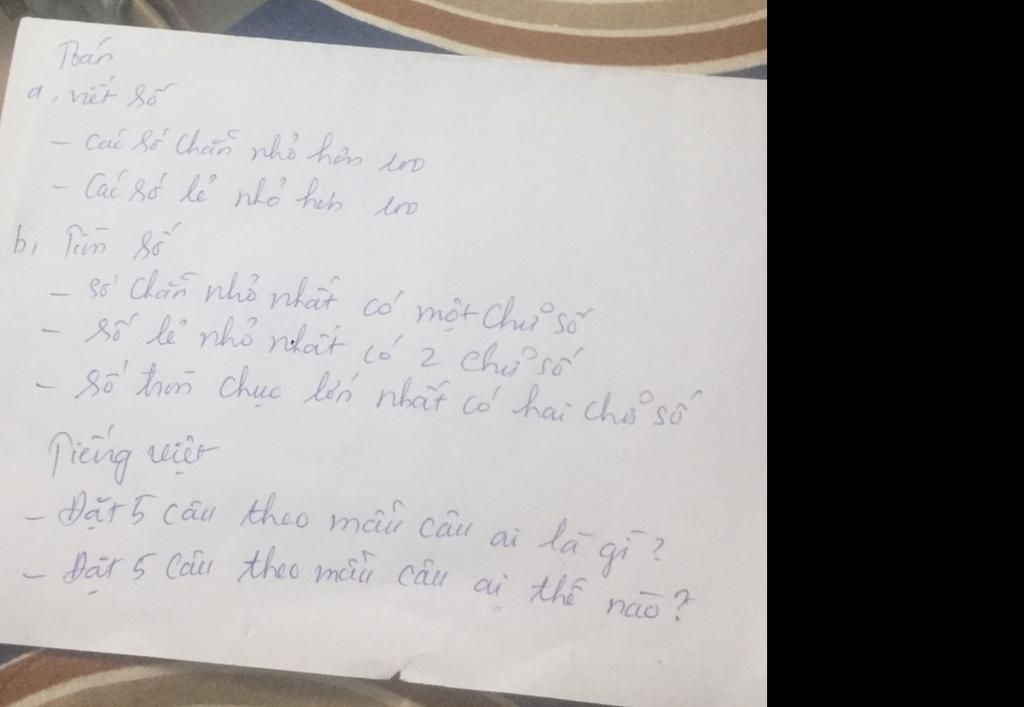 Toán
a, viết số
- các số chẵn nhỏ hơn 100
- Các số lẻ nhỏ hơn 100
b, Tìm số
- số chẵn nhỏ nhất có một chữ số
- số lẻ nhỏ nhất có 2 chữ số
- số tròn chục lớn nhất có hai chữ số
Tiếng việt
- Đặt 5 câu theo mẫu câu ai là gì?
- Đặt 5 câu theo mẫu câu ai thế nào?